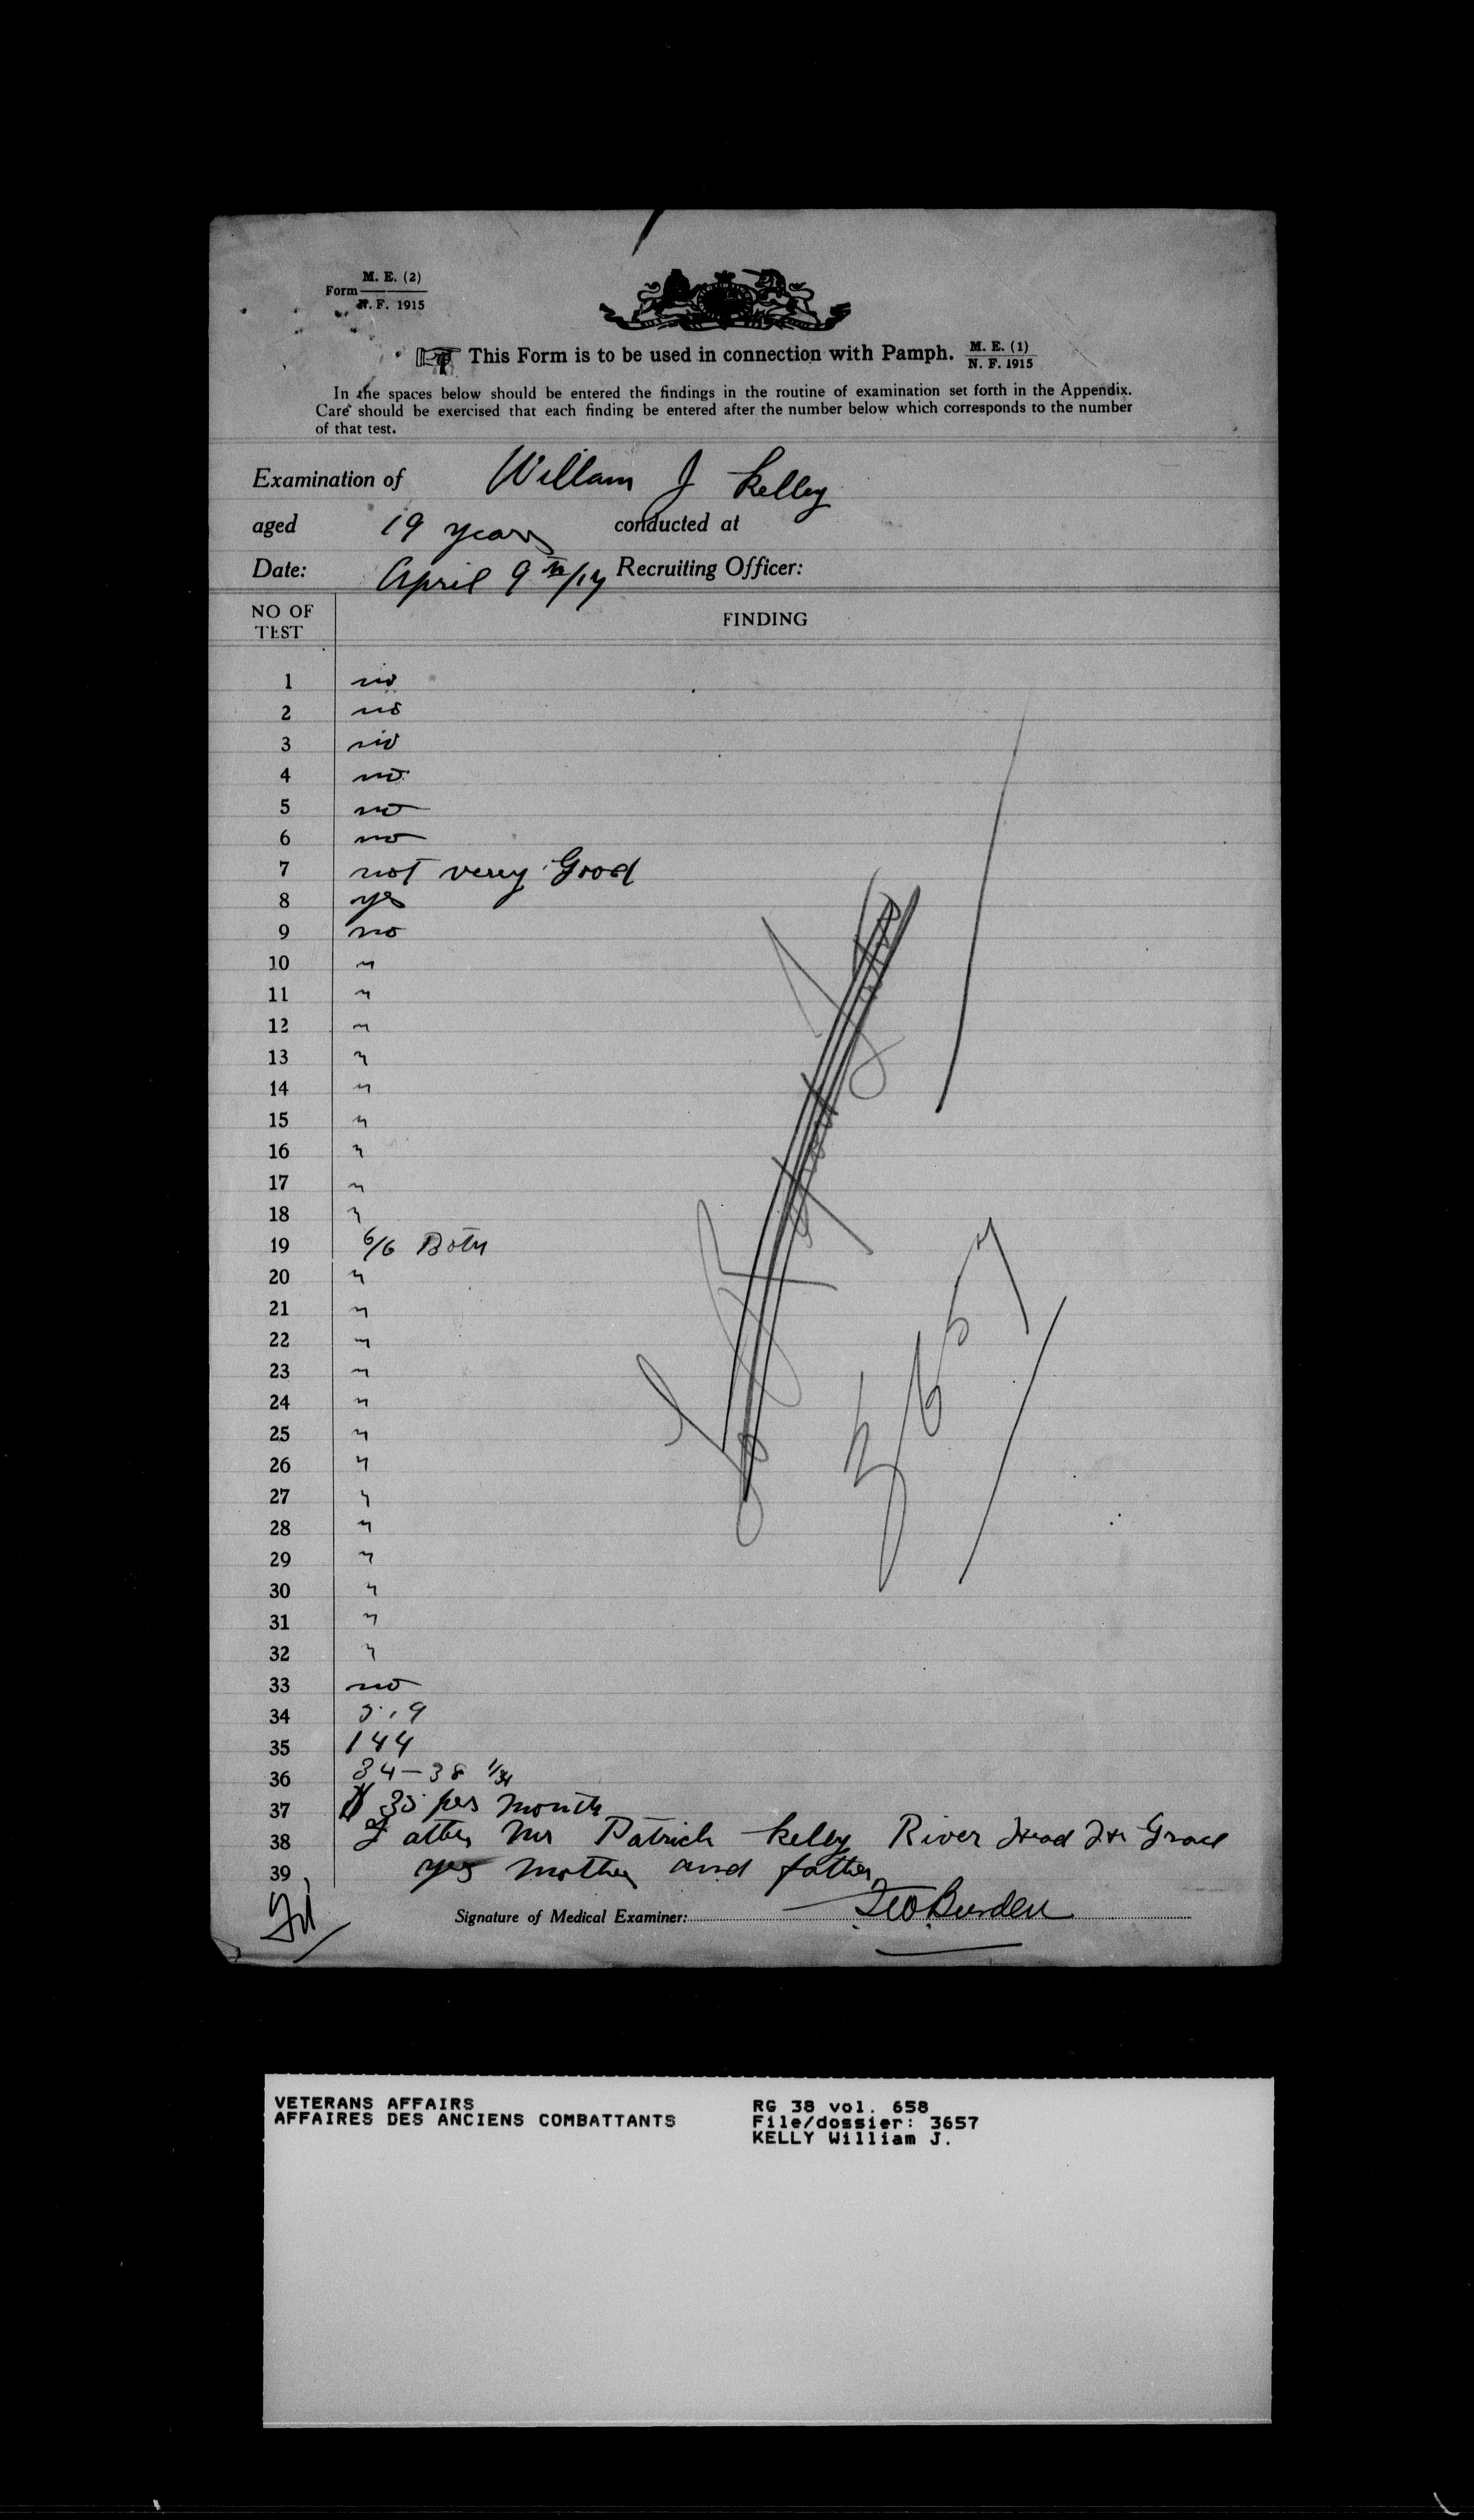 M. E. (2)
Form
N. F. 1915
This Form is to be used in connection with Pamph. M. E. (1)
N. F. 1915
In the spaces below should be entered the findings in the routine of examination set forth in the Appendix.
Care should be exercised that each finding be entered after the number below which corresponds to the number
of that test.
Examination of Willam J Kelley
aged 19 years conducted at
Date: April 9th/17 Recruiting Officer:
NO OF TEST FINDING
1 no
2 no
3 no
4 no
5 no
6 no
7 not very Good
8 yes
9 no
10 "
11 "
12 "
13 "
14 "
15 "
16 "
17 "
18 "
19 6/6 Both
20 "
21 "
22 "
23 "
24 "
25 "
26 "
27 "
28 "
29 "
30 "
31 "
32 "
33 no
34 5.9
35 144
36 34-38
37 $ 35 per month
38 Father Mr Patrick Kelley River Head Hr Grace
39 yes mother and father
3657
Signature of Medical Examiner: Burden
VETERANS AFFAIRS
AFFAIRES DES ANCIENS COMBATTANTS
RG 38 vol. 658
File/dossier: 3657
KELLY William J.